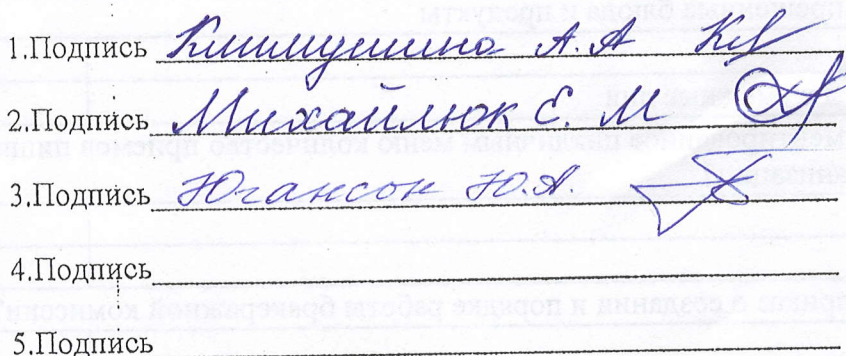 1.Подпись Климушина А.А
2.Подпись Михайлюк Е.М
3.Подпись Югансон Ю.А.
4.Подпись
5.Подпись